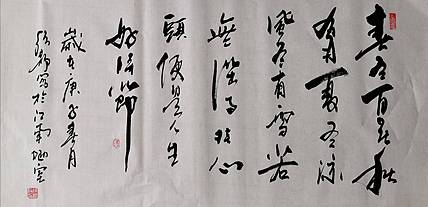 春有百花秋
有月夏有涼
風冬有雪若
無閑事掛心
頭便是人生
好時節
歲在庚子春月
寫於江南